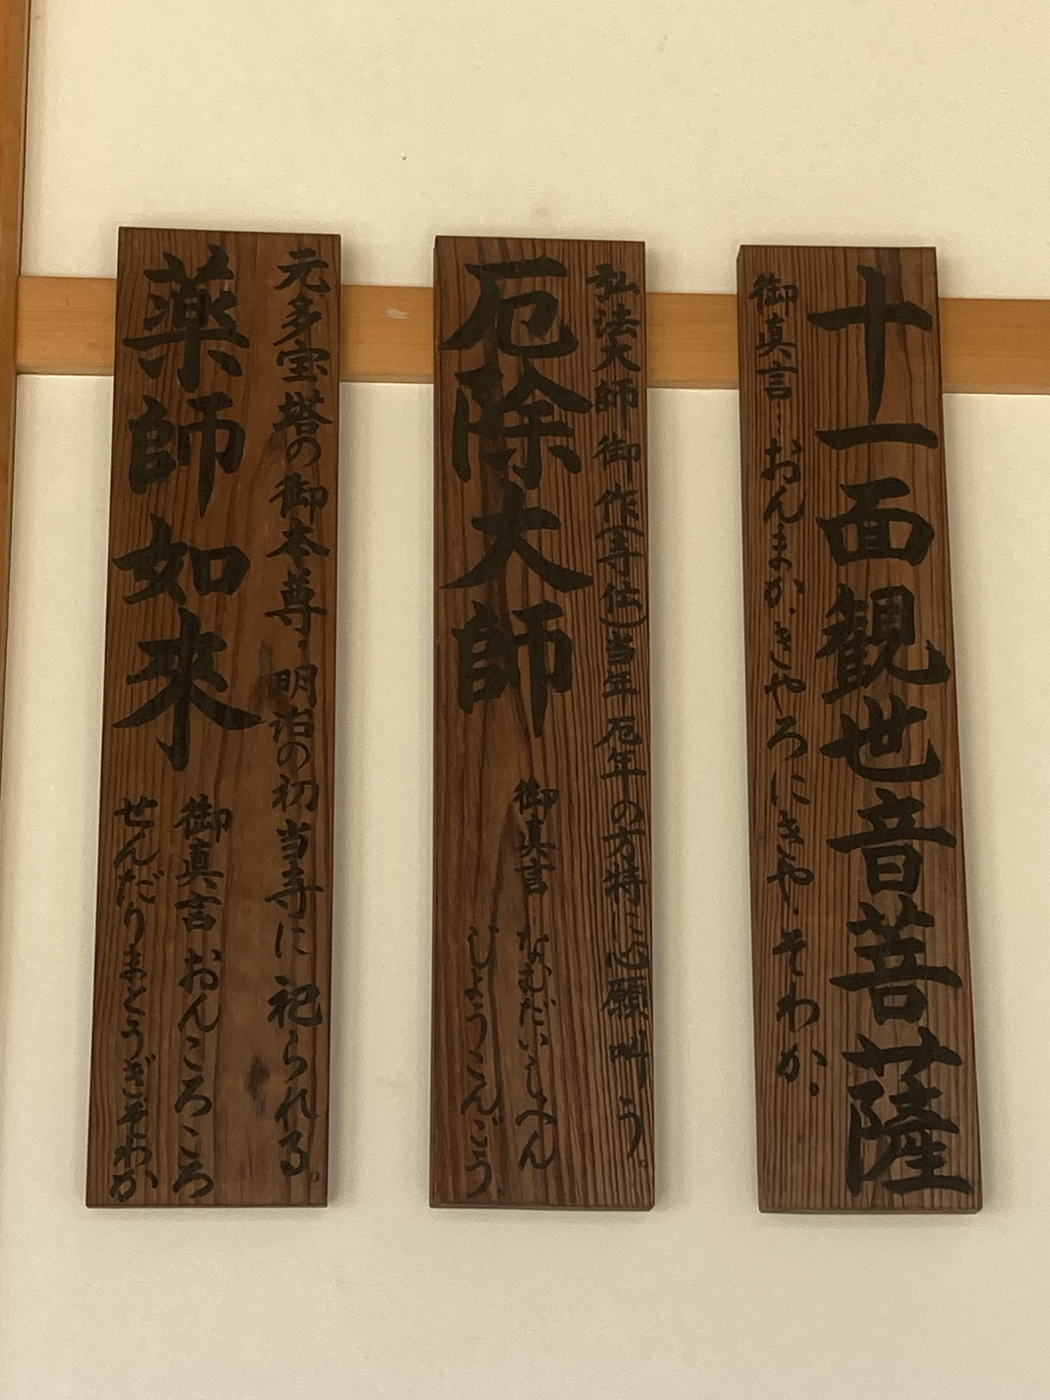 十一面観世音菩薩
御真言…おんまか、きやろにきや、そわか。
弘法大師御作(寺伝)当年厄年の方特に心願叫う。
厄除大師
御真言…なむだいしへん
じょうこんごう
元多宝塔の御本尊、明治の初当寺に祀られる。
薬師如来
御真言 おんころころ
せんだりまとうぎそわか